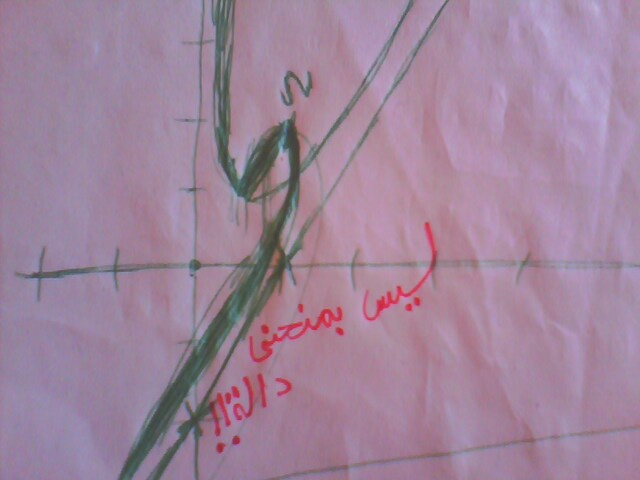 Ω
ليس بمنحنى
دالة